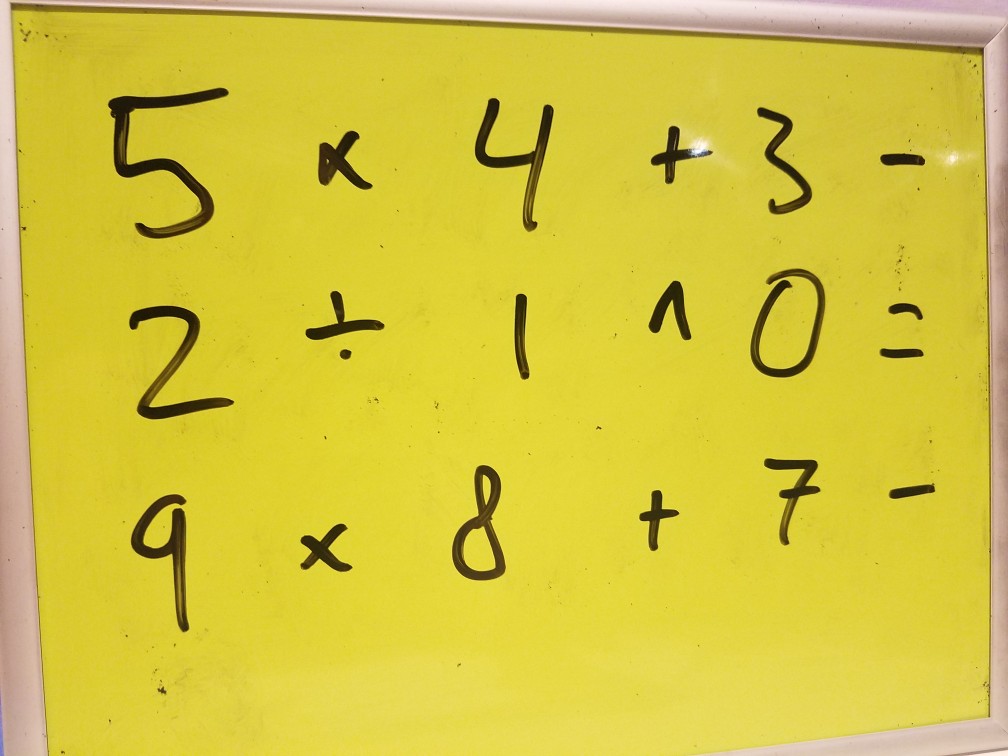 5 × 4 + 3 -
2 ÷ 1 ^ 0 =
9 × 8 + 7 -